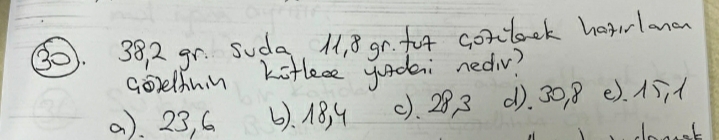 30. 38,2 gr. suda 11,8 gr. tuz çözülerek hazırlanan
çözeltinin kütlece yüzdesi nedir?
a). 23,6 b). 18,4 c). 28,3 d). 30,8 e). 15,1